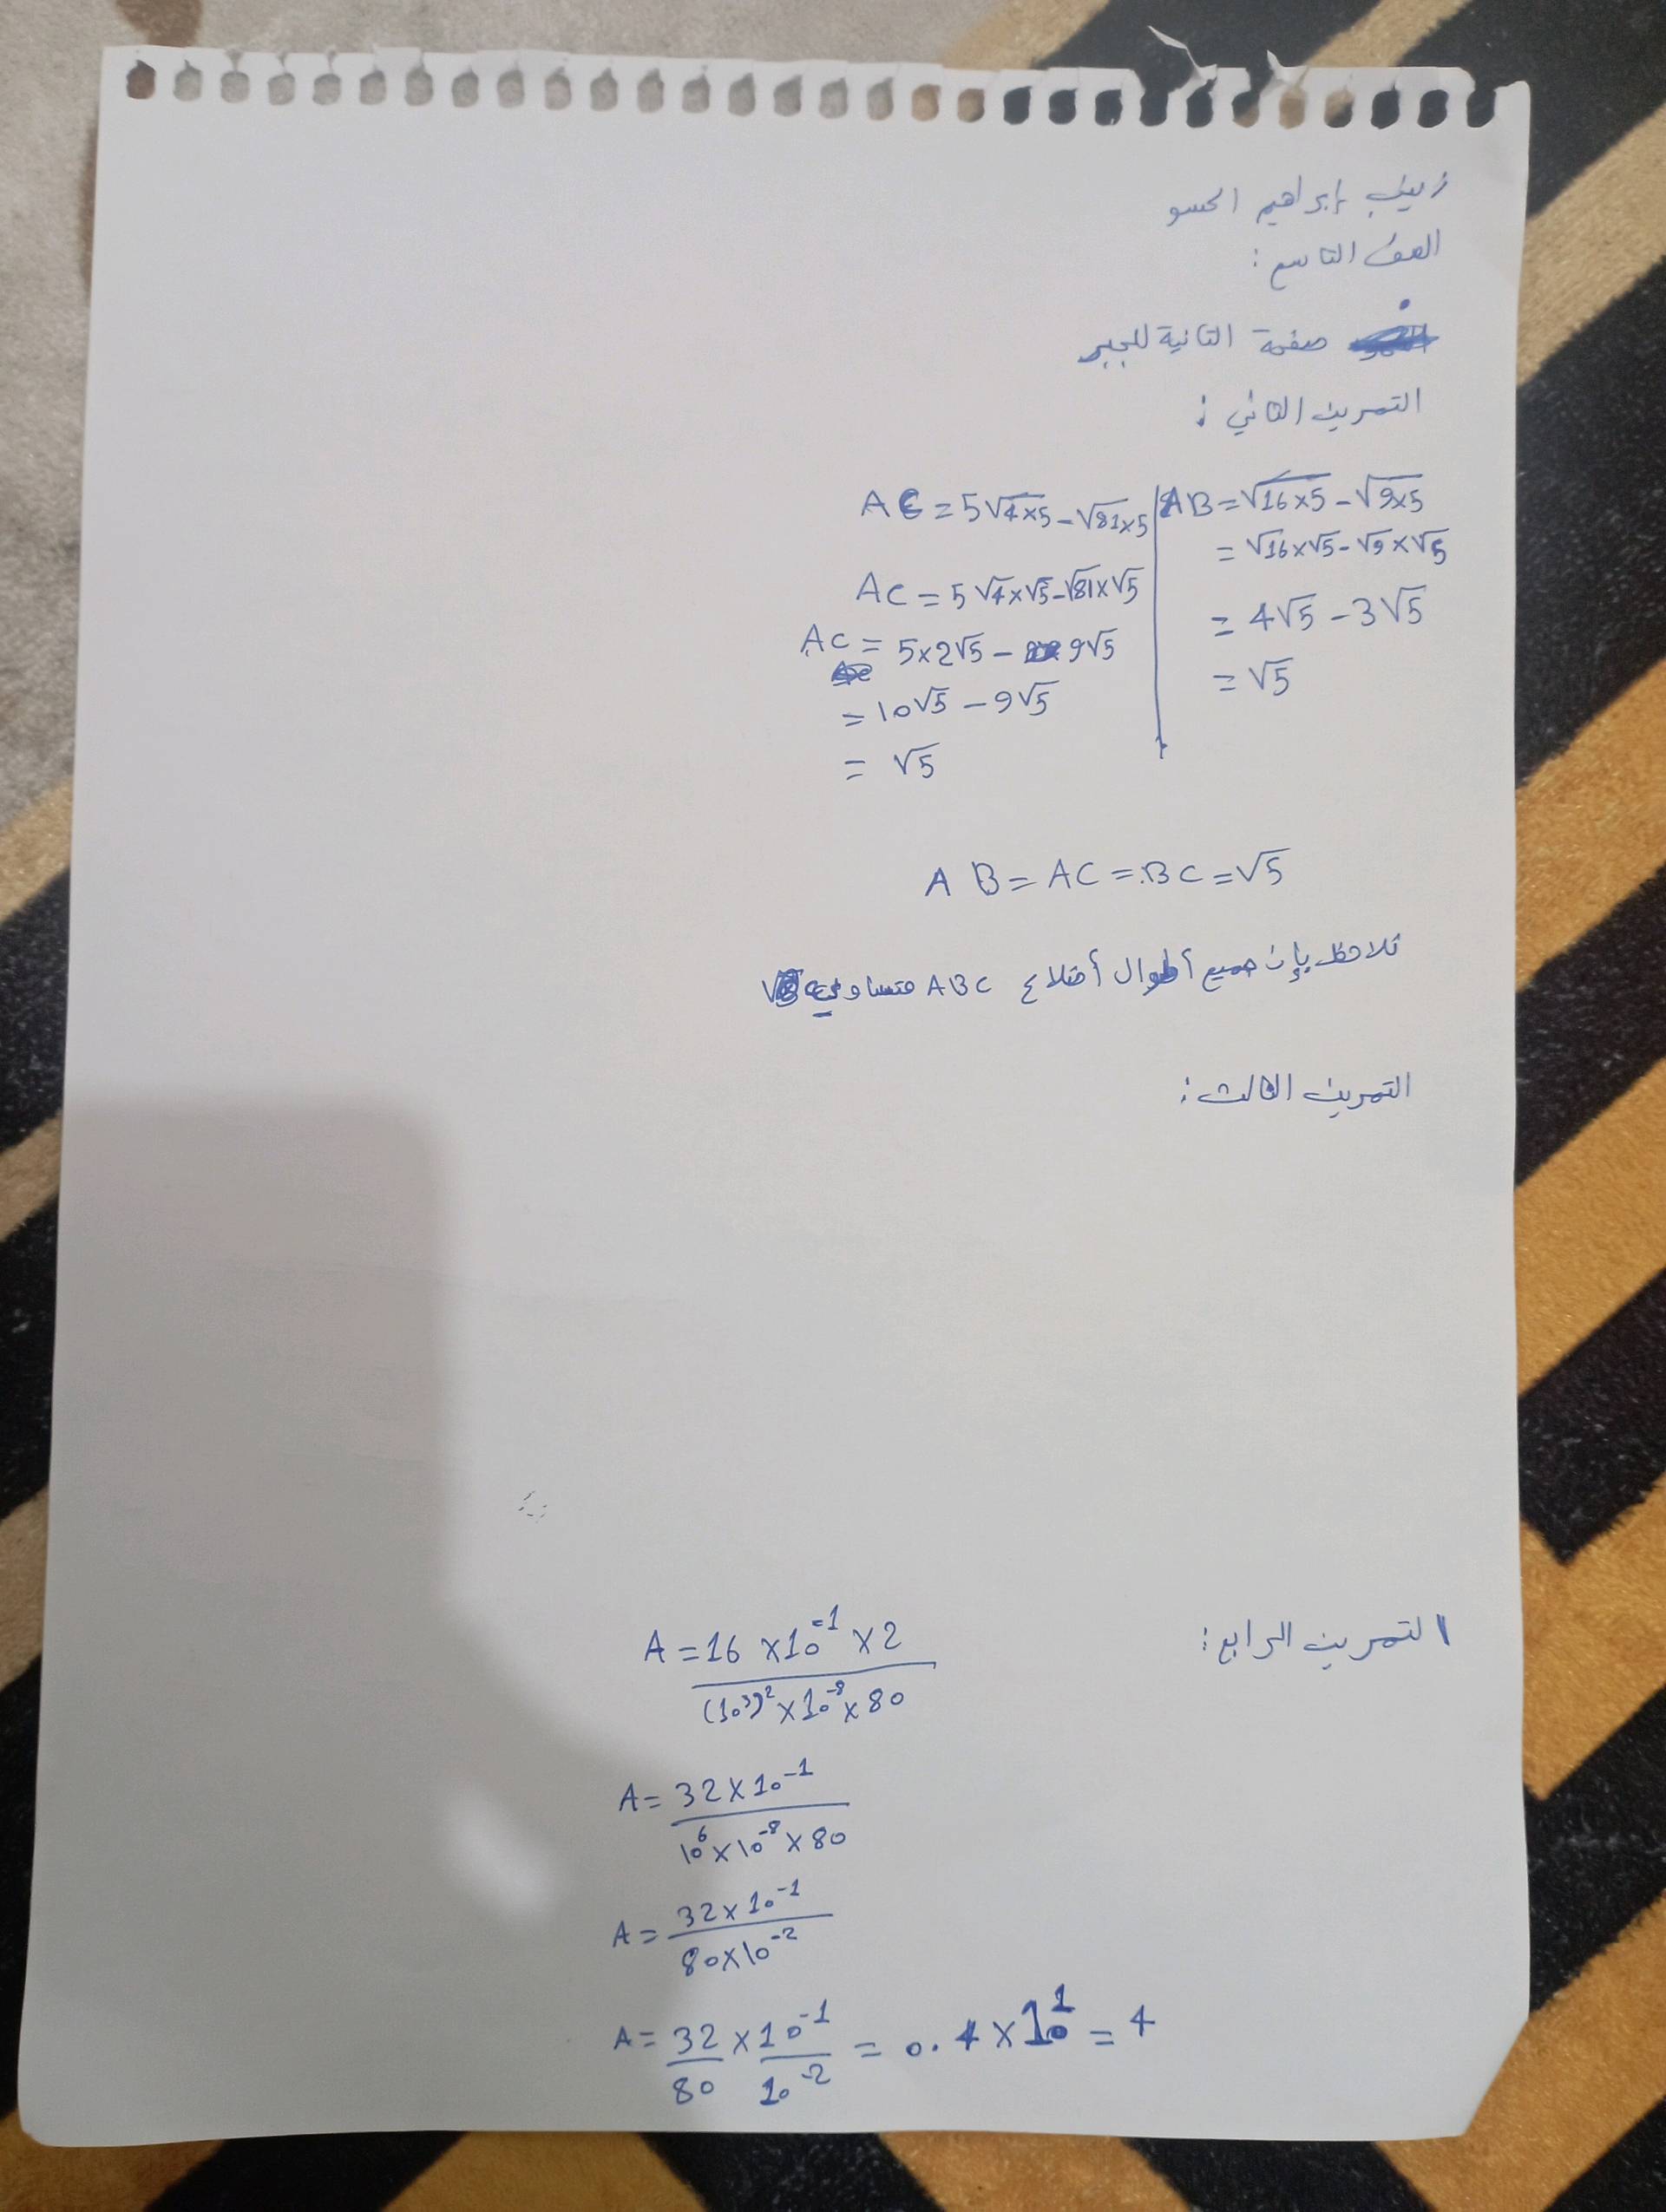 زينب إبراهيم الحسو
الصف التاسع :
صفحة الثانية للجبر
التمرين الثاني :
AB = √16×5 - √9×5
= √16 × √5 - √9 × √5
= 4√5 - 3√5
= √5
AC = 5√4×5 - √81×5
AC = 5√4×√5 - √81×√5
AC = 5×2√5 - 9√5
= 10√5 - 9√5
= √5
AB = AC = BC = √5
نلاحظ بإن جميع أطوال أضلاع ABC متساوي
التمرين الثالث :
التمرين الرابع :
A = 16 × 10⁻¹ × 2 / (10³)² × 10⁻⁸ × 80
A = 32 × 10⁻¹ / 10⁶ × 10⁻⁸ × 80
A = 32 × 10⁻¹ / 80 × 10⁻²
A = 32/80 × 10⁻¹/10⁻² = 0.4 × 10¹ = 4